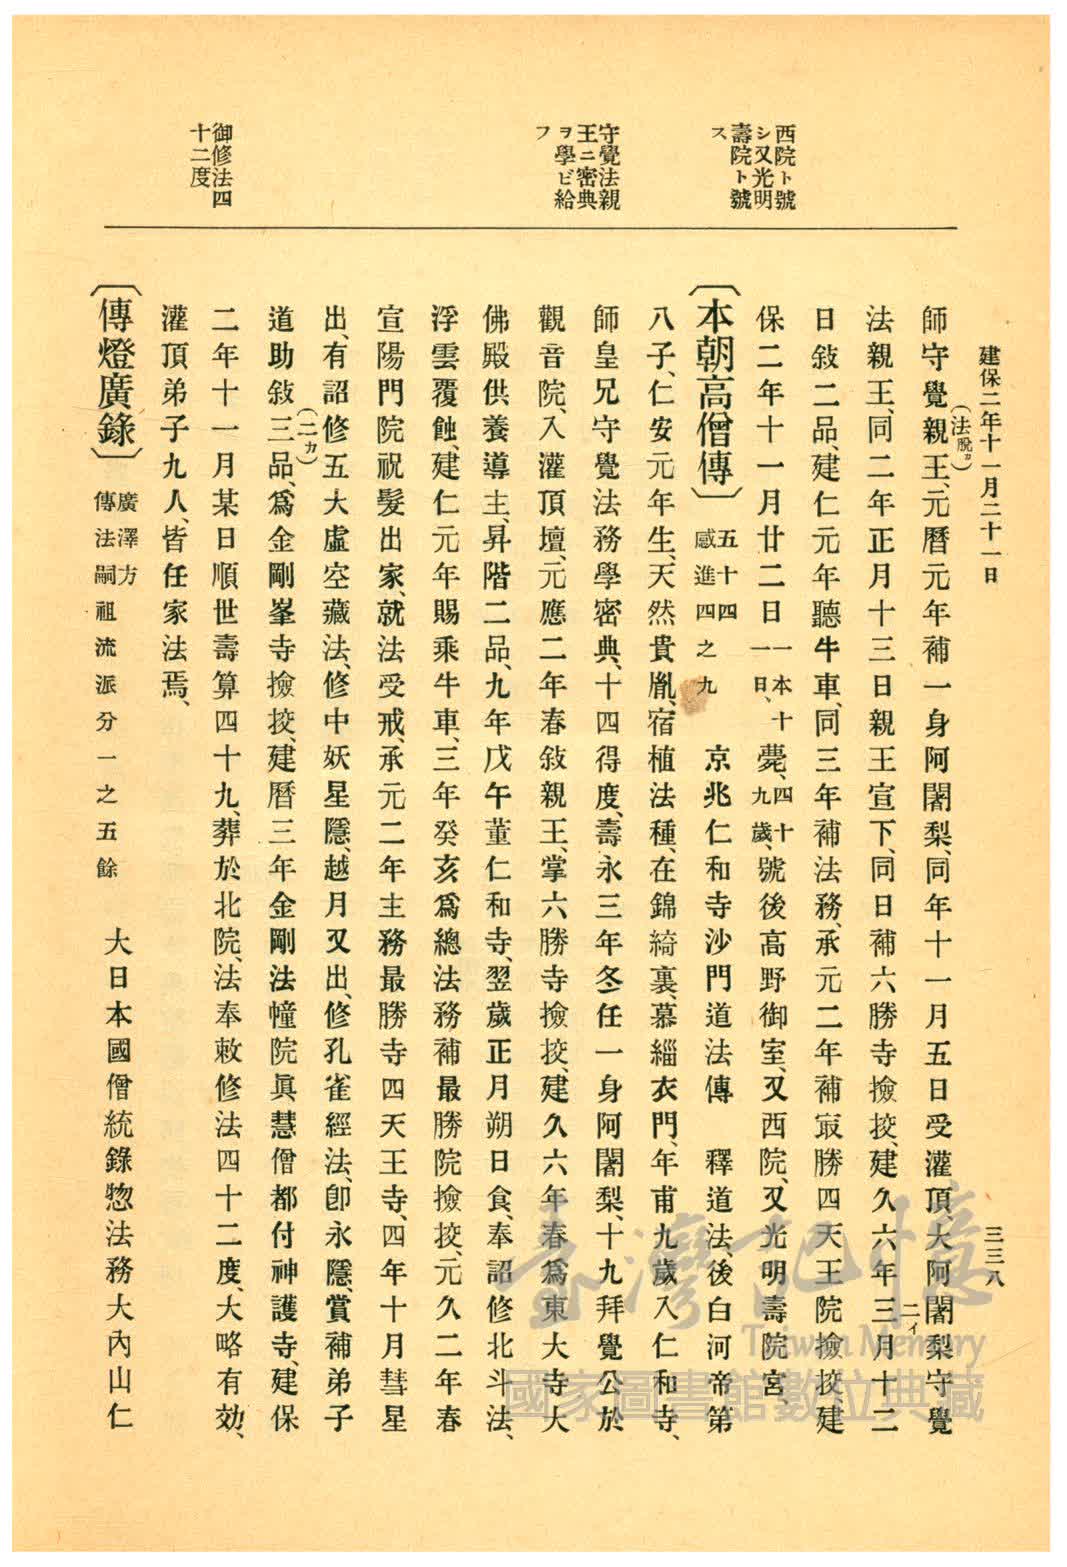 建保二年十一月二十一日
三三八
西院ト號
シ又光明
壽院ト號
ス
守覺法親
王ニ密典
ヲ學ビ給
フ
御修法四
十二度
(法脫カ)
師守覺親王、元曆元年補一身阿闍梨、同年十一月五日受灌頂、大阿闍梨守覺
二イ
法親王、同二年正月十三日親王宣下、同日補六勝寺撿挍、建久六年三月十二
日敍二品、建仁元年聽牛車、同三年補法務、承元二年補㝡勝四天王院撿挍、建
保二年十一月廿二日一本十一日、薨、四十九歲、號後高野御室、又西院、又光明壽院宮、
〔本朝高僧傳〕五十四感進四之九 京兆仁和寺沙門道法傳 釋道法、後白河帝第
八子、仁安元年生、天然貴胤、宿植法種、在錦綺裏、慕緇衣門、年甫九歲入仁和寺、
師皇兄守覺法務學密典、十四得度、壽永三年冬任一身阿闍梨、十九拜覺公於
觀音院、入灌頂壇、元應二年春敍親王、掌六勝寺撿挍、建久六年春爲東大寺大
佛殿供養導主、昇階二品、九年戊午董仁和寺、翌歲正月朔日食、奉詔修北斗法、
浮雲覆蝕、建仁元年賜乘牛車、三年癸亥爲總法務補最勝院撿挍、元久二年春
宣陽門院祝髮出家、就法受戒、承元二年主務最勝寺四天王寺、四年十月彗星
出、有詔修五大虛空藏法、修中妖星隱、越月又出、修孔雀經法、卽永隱、賞補弟子
(二カ)
道助敍三品、爲金剛峯寺撿挍、建曆三年金剛法幢院眞慧僧都付神護寺、建保
二年十一月某日順世壽算四十九、葬於北院、法奉敕修法四十二度、大略有効、
灌頂弟子九人、皆任家法焉、
〔傳燈廣錄〕廣澤方傳法嗣祖流派分一之五餘 大日本國僧統錄惣法務大內山仁
臺灣記憶
Taiwan Memory
國家圖書館數位典藏